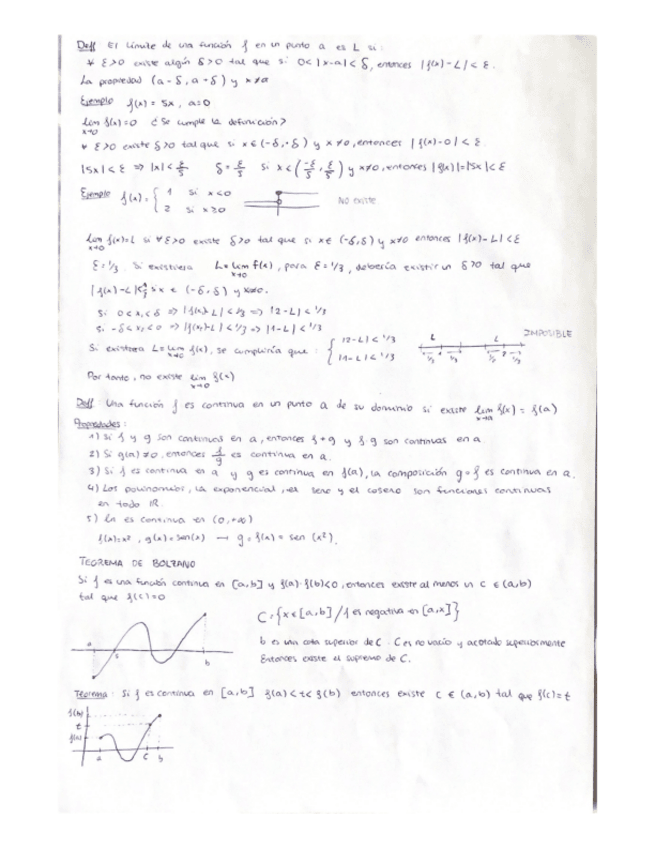 Deff: El límite de una función f en un punto a es L si:
∀ ε>0 existe algún δ>0 tal que si 0<|x-a|<δ, entonces |f(x)-L|<ε.
La propiedad (a-δ, a-δ) y x≠a
Ejemplo f(x) = 5x, a=0
lim f(x)=0 ¿Se cumple la definición?
x→0
∀ ε>0 existe δ>0 tal que si x ∈ (-δ,-δ) y x≠0, entonces |f(x)-0|<ε
|5x|<ε ⇒ |x|<ε/5 δ=ε/5 si x<(-ε/5, ε/5) y x≠0, entonces |f(x)|=|5x|<ε
Ejemplo f(x)= { 1 si x<0 NO existe
2 si x≥0
lim f(x)=L si ∀ε>0 existe δ>0 tal que si x∈ (-δ,δ) y x≠0 entonces |f(x)-L|<ε
x→0
ε=1/3. Si existiera L=lim f(x), para ε=1/3, debería existir un δ>0 tal que
x→0
|f(x)-L|< si x ∈ (-δ,δ) y x≠0.
Si 0<x<δ ⇒ |f(x)-L|<1/3 ⇒ |2-L|<1/3
si -δ<x<0 ⇒ |f(x)-L|<1/3 ⇒ |1-L|<1/3
Si existiera L=lim f(x), se cumpliría que: { |2-L|<1/3 L L IMPOSIBLE
x→0 |1-L|<1/3
Por tanto, no existe lim f(x)
x→0
Deff: Una función f es continua en un punto a de su dominio si existe lim f(x) = f(a)
x→a
Propiedades:
1) Si f y g son continuas en a, entonces f+g y f·g son continuas en a.
2) Si g(a)≠0, entonces f/g es continua en a.
3) Si f es continua en a y g es continua en f(a), la composición g∘f es continua en a.
4) Los polinomios, la exponencial, el seno y el coseno son funciones continuas
en todo IR.
5) ln es continua en (0,+∞)
f(x)=x², g(x)=sen(x) → g∘f(x) = sen (x²).
TEOREMA DE BOLZANO
Si f es una función continua en [a,b] y f(a)·f(b)<0, entonces existe al menos un c ∈ (a,b)
tal que f(c)=0
C={x∈[a,b]/f es negativa en [a,x]}
b es una cota superior de C. C es no vacío y acotado superiormente
Entonces existe el supremo de C.
a b
Teorema: Si f es continua en [a,b] f(a)<t<f(b) entonces existe c ∈ (a,b) tal que f(c)=t
f(b)
t
f(a)
a c b